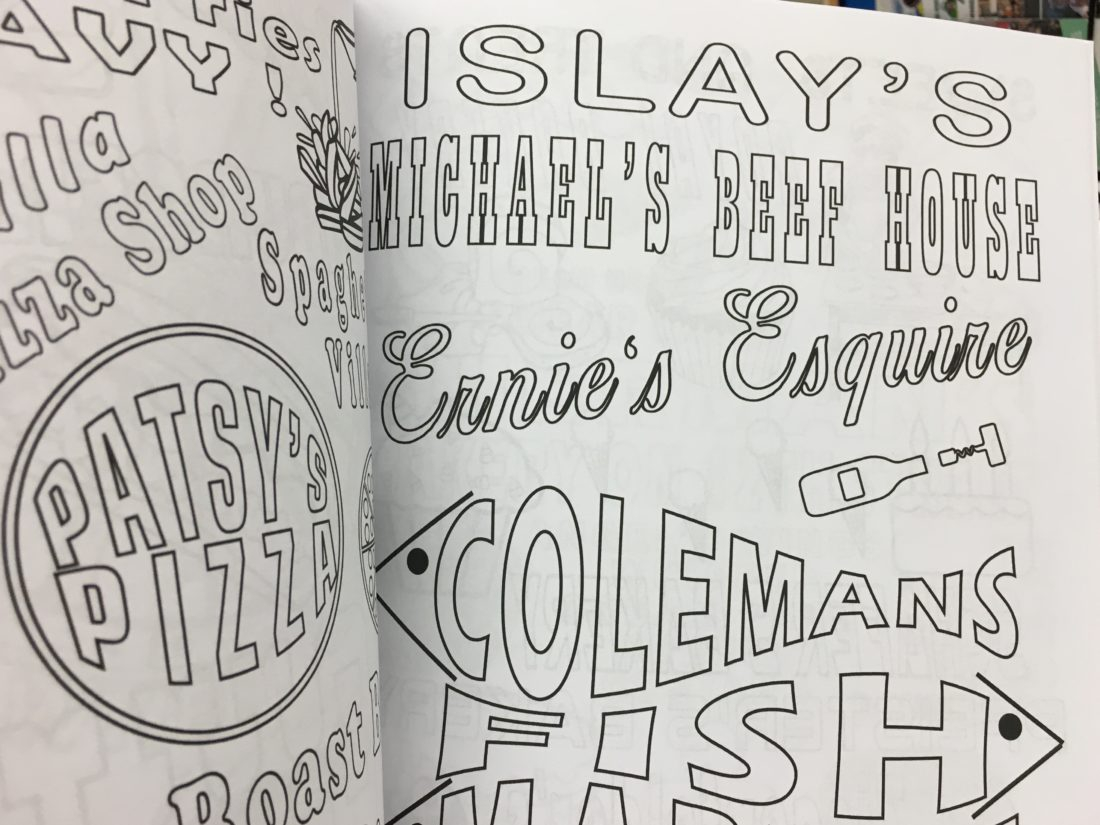 Pizza Shop
Spaghe
Vill
PATSY'S
PIZZA
Roast
ISLAY'S
MICHAEL'S BEEF HOUSE
Ernie's Esquire
COLEMANS
FISH